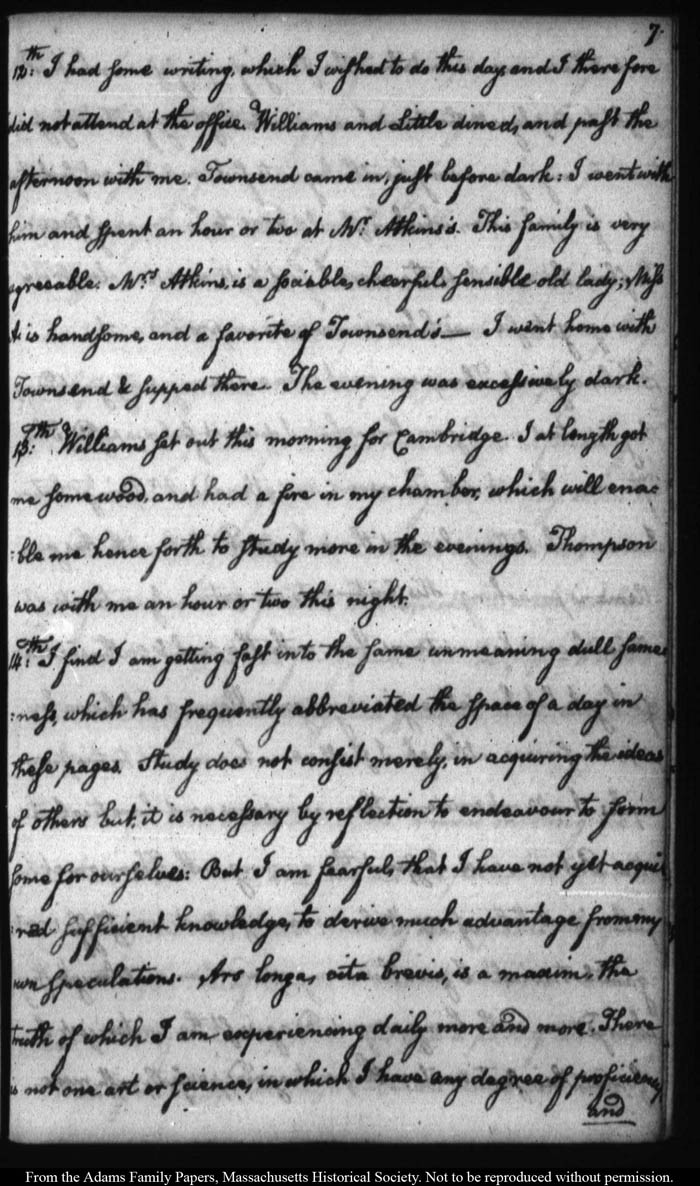 7.
12.th I had some writing, which I wished to do this day, and I therefore
did not attend at the office. Williams and Little dined, and past the
afternoon with me. Townsend came in, just before dark: I went with
him and spent an hour or two at Mr. Atkins's. This family is very
agreeable. Mrs Atkins, is a sociable, chearful, sensible old lady; Miss
A. is handsome, and a favorite of Townsend's— I went home with
Townsend & supped there. The evening was excessively dark.
13.th Williams set out this morning for Cambridge. I at length got
me some wood, and had a fire in my chamber, which will ena-
:ble me hence forth to study more in the evenings. Thompson
was with me an hour or two this night.
14.th I find I am getting fast into the same unmeaning dull same-
:ness, which has frequently abbreviated the space of a day in
these pages. Study does not consist merely, in acquiring the ideas
of others but, it is necessary by reflection to endeavour to form
some for ourselves: But I am fearful, that I have not yet acqui-
:red sufficient knowledge, to derive much advantage from my
own speculations. Ars longa, vita brevis, is a maxim, the
truth of which I am experiencing daily more and more. There
is not one art or science, in which I have any degree of proficiency,
and
From the Adams Family Papers, Massachusetts Historical Society. Not to be reproduced without permission.